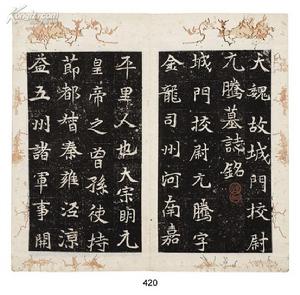 大魏故城門校尉
元騰墓誌銘
城門校尉元騰字
金龍司州河南嘉
平里人也太宗明元
皇帝之曾孫使持
節都督秦雍涇涼
益五州諸軍事開
420